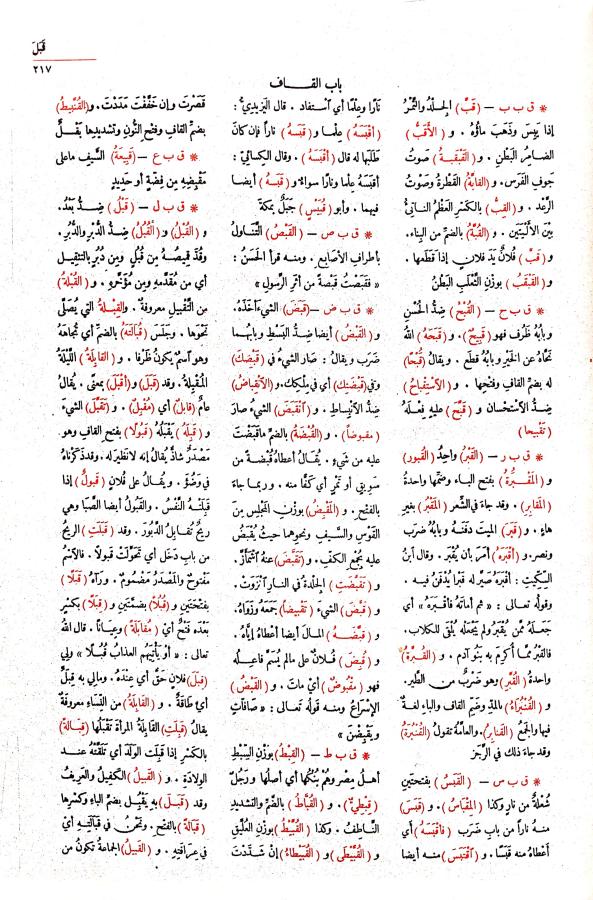 قَبَلَ
٢١٧
باب القاف
* ق ب ب – (قَبَّ) الجِلدُ والتَّمْرُ
إذا يَبِسَ وذَهَبَ ماؤُه . و (الأَقَبُّ)
الضامِرُ البَطْنِ . و (القَبْقَبةُ) صَوتُ
جوفِ الفَرَس . و (القابَّةُ) القَطْرَةُ وصَوْتُ
الرَّعد . و (القِبُّ) بالكَسْرِ العَظْمُ الناتِئُ
بَيْنَ الأَلْيَتَينِ . و (القُبَّةُ) بالضمّ من البِناء .
و (قَبَّ) فُلانٌ يَدَ فلانٍ إذا قَطَعها .
و (القَبْقَبُ) بوزْنِ الثَّعْلَبِ البَطْنُ
* ق ب ح – (القُبْحُ) ضِدُّ الحُسْنِ
وبابُهُ ظَرُفَ فهو (قَبِيحٌ) . و (قَبَحَهُ) اللهُ
نَحَّاهُ عن الخَيْرِ وبابُهُ قَطَع . ويقالُ (قُبْحًا)
له بضم القاف وفتحِها . و (الاسْتِقْباحُ)
ضِدُّ الاسْتِحْسان و (قَبَّحَ) عليه فِعْلَهُ
(تَقْبِيحا)
* ق ب ر – (القَبْرُ) واحِدُ (القُبور)
و (المَقْبَرَةُ) بفتح الباء وضمِّها واحدةُ
(المَقابِر) . وقد جاءَ في الشِّعر (المَقْبَرُ) بغير
هاءٍ . و (قَبَرَ) الميتَ دَفَنَهُ وبابُهُ ضَرَب
ونصر . و (أقْبَرَهُ) أمَرَ بأن يُقْبَر . وقال ابنُ
السِّكِّيتِ : أقْبَرَهُ صَيَّرَ له قَبْرًا يُدْفَنُ فيه .
وقولُه تعالى : «ثم أماتَهُ فأقْبَرَهُ» أي
جَعَلَهُ مِمَّن يُقْبَرُ ولم يَجْعَلْهُ يُلْقَى للكلاب .
فالقَبْرُ ممَّا أُكرِمَ به بَنُو آدم . و (القُبَّرَةُ)
واحدةُ (القُبَّرِ) وهو ضَرْبٌ من الطَّير .
و (القُنْبُراءُ) بالمدّ وضمّ القاف والباء لغةٌ
فيها والجَمْعُ (القَنابِرُ) . والعامَّةُ تقولُ (القُنْبُرَةُ)
وقد جاءَ ذلك في الرَّجَز
* ق ب س – (القَبَسُ) بفتحتَينِ
شُعْلَةٌ من نارٍ وكذا (المِقْباسُ) . و (قَبَسَ)
منه ناراً من باب ضَرَب (فأقْبَسَهُ) أي
أعْطاهُ منه قَبَسًا . و (اقْتَبَسَ) منه أيضا
نارًا وعِلْمًا أي استَفاد . قال اليَزِيديُّ :
(أقْبَسَهُ) عِلْما و (قَبَسَهُ) ناراً فإن كانَ
طَلَبَها له قال (أقْبَسَهُ) . وقال الكِسائيُّ :
أقْبَسَهُ عِلْما ونارًا سواءٌ و (قَبَسَهُ) أيضا
فيهما . وأبو (قُبَيْسٍ) جَبَلٌ بمكَّةَ
* ق ب ص – (القَبْصُ) التَّناوُلُ
بأطرافِ الأصابع . ومنه قرأ الحَسَنُ :
«فقَبَصْتُ قَبْصَةً من أثَرِ الرَّسولِ»
* ق ب ض – (قَبَضَ) الشيءَ أخَذَهُ .
و (القَبْضُ) أيضا ضِدُّ البَسْط وبابُهما
ضَرَب ويقالُ : صارَ الشيءُ في (قَبْضِكَ)
وفي (قَبْضَتِكَ) أي في مِلْكِكَ . و (الانْقِباضُ)
ضِدُّ الانْبِساط . و (انْقَبَضَ) الشيءُ صارَ
(مقبوضاً) . و (القُبْضَةُ) بالضمّ ما قَبَضْتَ
عليه من شيءٍ . يُقالُ أعطاهُ قُبْضةً من
سَوِيقٍ أو تمْرٍ أي كَفًّا منه . وربما جاءَ
بالفتح . و (المَقْبِضُ) بوزن المجلِسِ مِن
القَوْسِ والسَّيفِ ونحوِهما حيثُ يُقْبَضُ
عليه بجُمْعِ الكفّ . و (تَقَبَّضَ) عنهُ اشْمَأَزَّ .
و (تَقَبَّضَتِ) الجِلْدةُ في النار انْزَوَتْ .
و (قَبَّضَ) الشيءَ (تَقْبِيضاً) جَمَعَهُ وزَواهُ .
و (قَبَّضَهُ) المالَ أيضا أعْطاهُ إيَّاهُ .
و (قُبِضَ) فُلانٌ على مالم يُسَمَّ فاعِلُه
فهو (مَقْبوضٌ) أي مات . و (القَبْضُ)
الإسْراعُ ومنه قوله تعالى : «صافَّاتٍ
ويَقْبِضْنَ»
* ق ب ط – (القِبْطُ) بوزْنِ السِّبْطِ
أهلُ مصر وهم بُنْكُها أي أصلُها ورَجُلٌ
(قِبْطِيٌّ) . و (القُبَّاطُ) بالضَّمِّ والتشديدِ
النَّاطِفُ . وكذا (القُبَّيْطُ) بوزنِ العُلَّيْقِ
و (القُبَّيْطَى) و (القُبَيْطاءُ) إنْ شَدَّدْتَ
قَصَرْتَ وإن خَفَّفْتَ مَدَدْتَ . و (القُنَّبِيطُ)
بضمّ القافِ وفتح النُّونِ وتشديدِها بَقْلٌ
* ق ب ع – (قَبِيعَةُ) السَّيف ماعلى
مَقْبِضِهِ من فِضَّةٍ أو حَديدٍ
* ق ب ل – (قَبْلُ) ضِدُّ بَعْدُ .
و (القُبْلُ) و (القُبُلُ) ضِدُّ الدُّبْرِ والدُّبُر .
وقُدَّ قَمِيصُهُ من قُبُلٍ ومِن دُبُرٍ بالتثقيل
أي من مُقَدَّمِهِ ومِن مُؤَخَّرِهِ . و (القُبْلَةُ)
من التَّقْبيلِ معروفةٌ . و(القِبْلَةُ) التي يُصَلَّى
نحوَها . وجَلَسَ (قُبالَتَهُ) بالضمّ أي تُجاهَهُ
وهو اسمٌ يكونُ ظَرْفا . و (القابِلَةُ) اللَّيْلَةُ
المُقْبِلَةُ . وقد (قَبَلَ) و(أقْبَلَ) بمعنًى . يُقالُ
عامٌ (قابِلٌ) أي (مُقْبِلٌ) . و (تَقَبَّلَ) الشيءَ
و (قَبِلَهُ) يَقْبَلُهُ (قَبُولاً) بفتح القافِ وهو
مَصْدَرٌ شاذٌّ يقالُ إنه لا نَظِيرَ له . وقد ذَكَرْناهُ
في وَضُؤَ . ويُقالُ على فُلانٍ (قَبولٌ) إذا
قَبِلَتْهُ النَّفْسُ . والقَبُولُ أيضا الصَّبا وهي
ريحٌ تُقابِلُ الدَّبُورَ . وقد (قَبَلَتِ) الريحُ
من باب دَخَل أي تحوَّلَتْ قَبولاً . فالاسْمُ
مَفْتوحٌ والمَصْدَرُ مَضْمُومٌ . ورآهُ (قَبَلًا)
بفتحَتَينِ و (قُبُلًا) بضمَّتَينِ و (قِبَلًا) بكسرٍ
بَعْدَه فَتْحٌ أي (مُقابَلَةً) وعِيانًا . قال اللهُ
تعالى : «أو يأْتِيَهُمُ العذابُ قُبُلًا» ولي
(قِبَلَ) فلانٍ حَقٌّ أي عِنْدَهُ . ومالي به قِبَلٌ
أي طاقَةٌ . و (القابِلَةُ) من النِّساءِ معروفةٌ
يقالُ (قَبِلَتِ) القابِلةُ المرأةَ تَقْبَلُها (قِبالَةً)
بالكَسْرِ إذا قَبِلَتِ الولَدَ أي تَلَقَّتْهُ عند
الوِلادة . و (القَبِيلُ) الكَفِيلُ والعَرِيفُ
وقد (قَبَلَ) به يَقْبُلُ بضم الباءِ وكسرِها
(قَبالَةً) بالفتح . ونحنُ في قَبالَتِهِ أي
في عِرافَتِهِ . و (القَبِيلُ) الجماعةُ تكونُ من